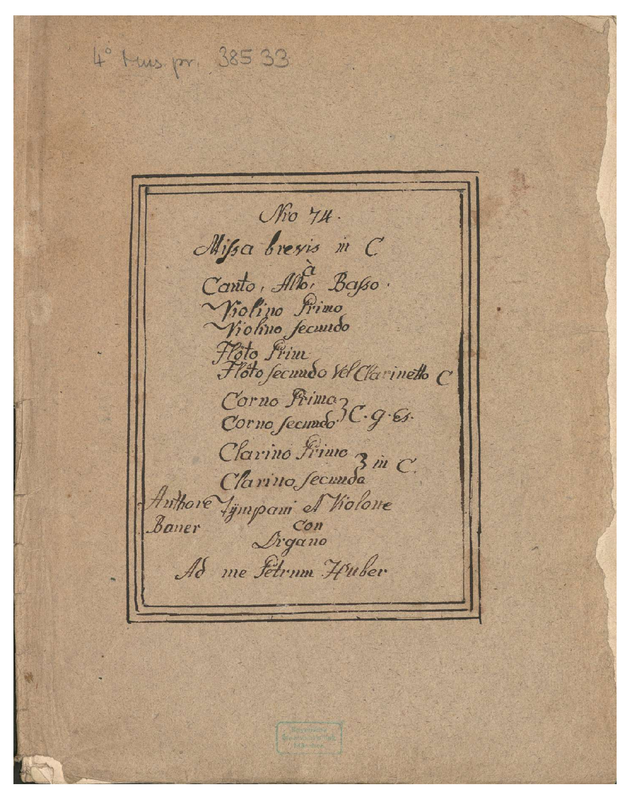 4° Mus. pr. 38533
Nro 74.
Missa brevis in C
à
Canto, Alto, Basso.
Violino Primo
Violino secundo
Flöto Prim
Flöto secundo Vel Clarinetto C
Corno Primo
Corno secundo } C. g. Es.
Clarino Primo
Clarino secundo } in C.
Authore Tÿmpani et Violone
Baner con
Organo
Ad me Petrum Huber